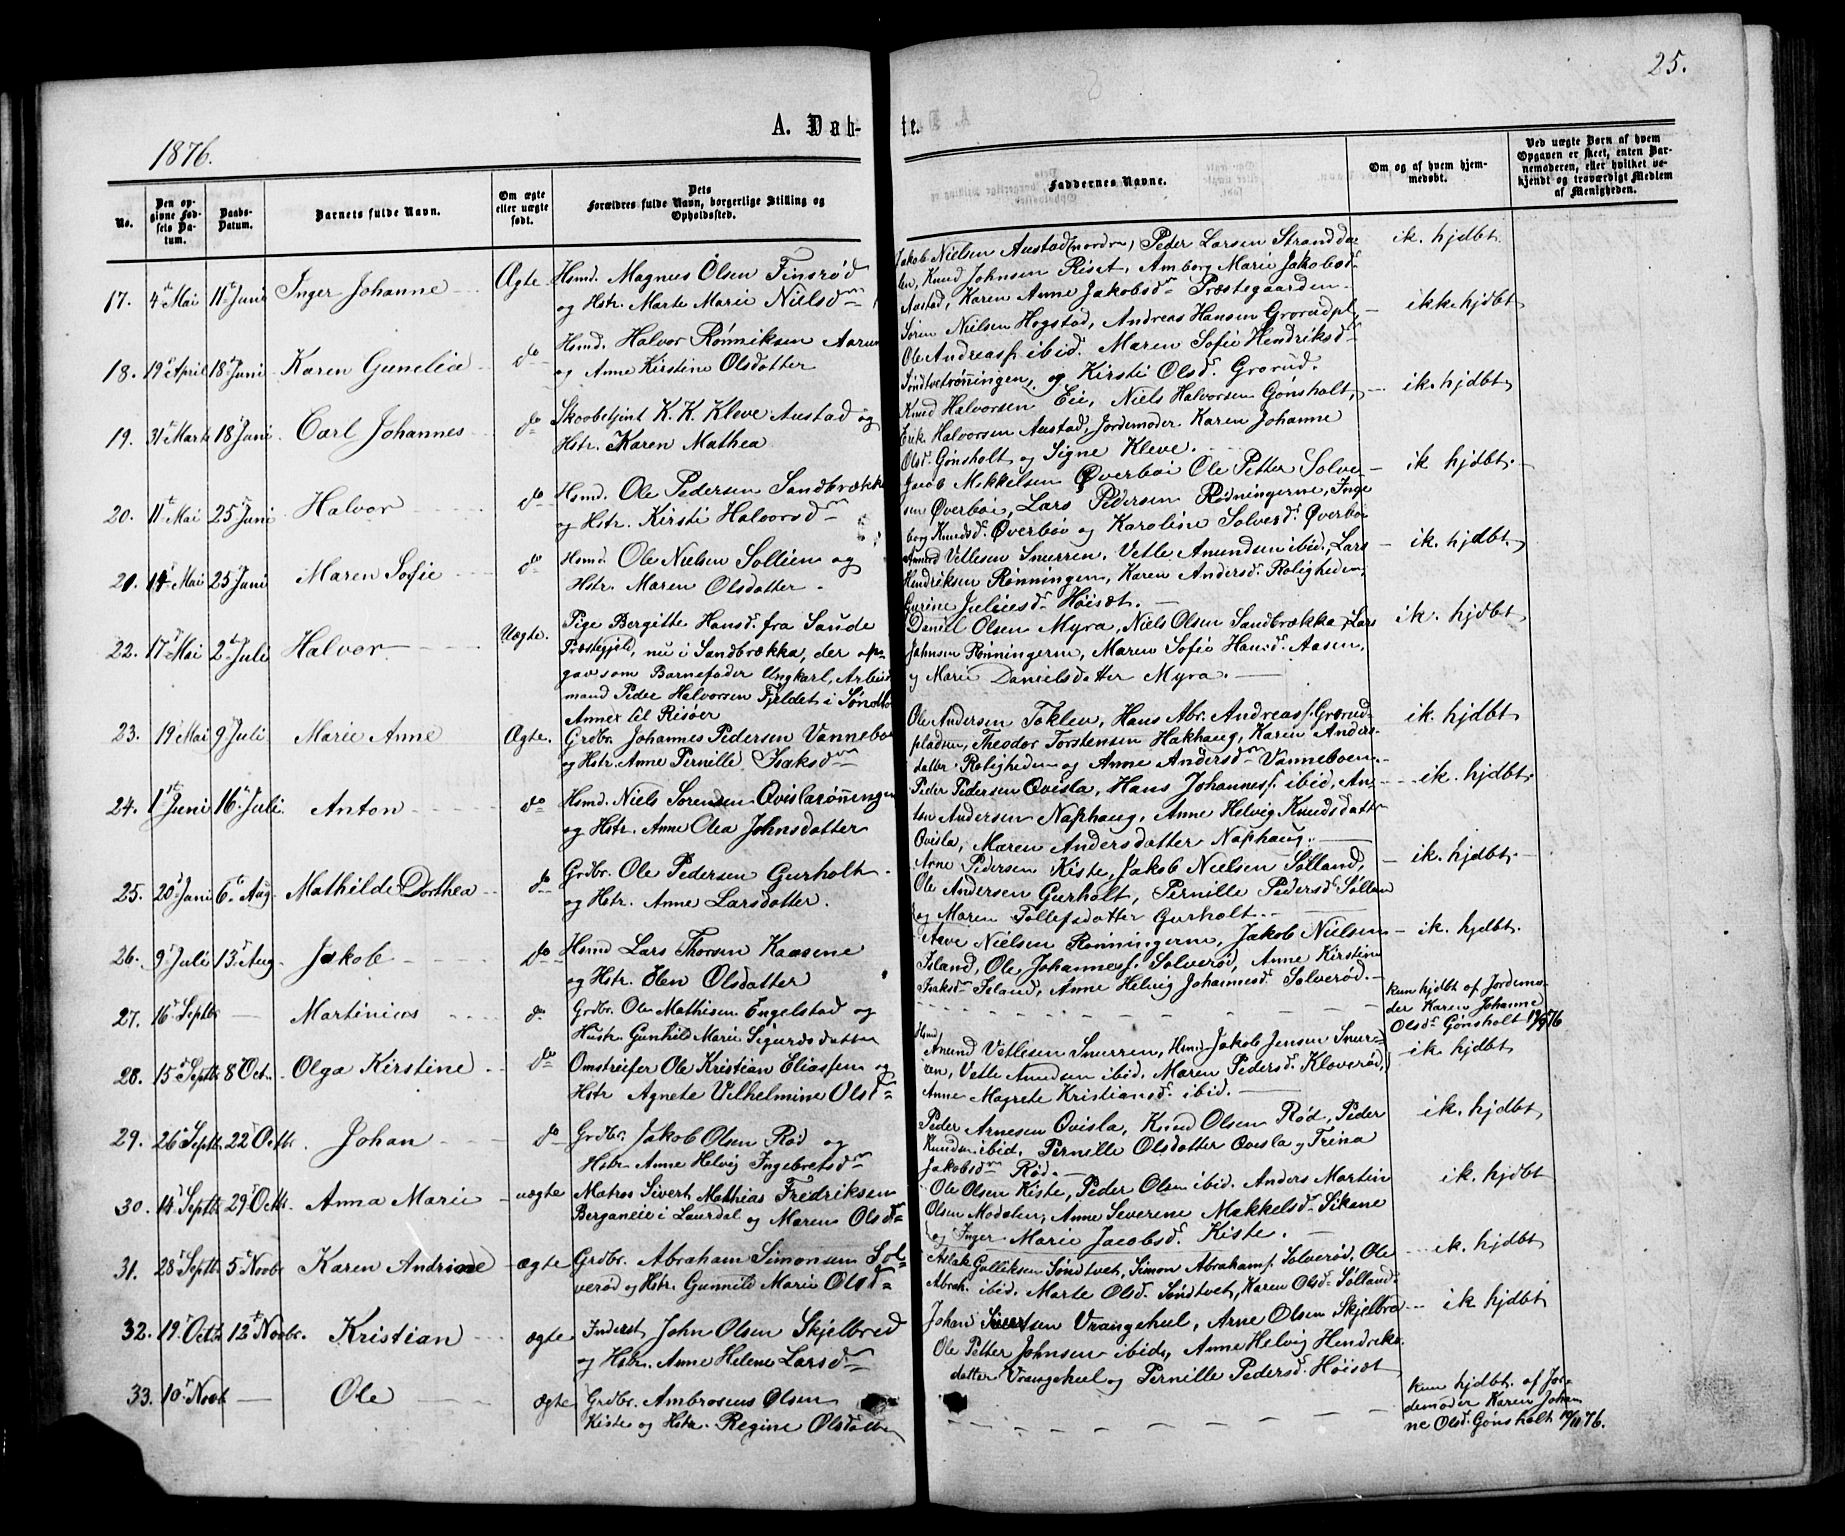 25.
A. Døb-
te.
1876.
No.
Den opgivne Fødsels Datum.
Daabs-Datum.
Barnets fulde Navn.
Om ægte eller uægte født.
Dets Forældres fulde Navn, borgerlige Stilling og Opholdssted.
Faddernes Navne.
Om og af hvem hjemmedøbt.
Ved uægte Børn af hvem Opgaven er skeet, enten Barnemoderen, eller hvilket bekjendt og troværdigt Medlem af Menigheden.
17. 4de Mai 11te Juni Inger Johanne Ægte Hsmd. Magnus Olsen Finsrød
og Hstr. Marte Marie Nielsdr
Jakob Nielsen Austad (nordre) Peder Larsen Stranddalen, Knud Johnsen Riset, Amborg Marie Jakobsdr
Aastad, Karen Anne Jakobsdr Præstegaarden
ik. hjdbt.
18. 19de April 18de Juni Karen Gunelia do Hsmd. Halvor Rønniksen Aarum
og Anne Kirstine Olsdatter
Søren Nielsen Hogstad, Andreas Hansen Grorudpl.
Ole Andreass. ibid. Maren Sofie Hendriksdr
Søndtvetrønningen, og Kirsti Olsd. Grorud.
ikke hjdbt
19. 31te Marts 18de Juni Carl Johannes do Skoobetjint K. K. Kleve Austad og
Hstr. Karen Mathea
Knud Halvorsen Eie, Niels Halvorsen Gønsholt,
Erik Halvorsen Austad, Jordemoder Karen Johanne
Olsd. Gønsholt og Signe Kleve.
ik. hjdbt
20. 11te Mai 25de Juni Halvor do Hsmd. Ole Pedersen Sandbrækka
og Hstr. Kirsti Halvorsdr
Jacob Mikkelsen Øverbøi Ole Petter Solvesen Øverbøi, Lars Pedersen Rødningerne, Ingeborg Knudsd. Øverbøi og Karoline Solvesd. Øverbøi
ik hjdbt.
21. 14de Mai 25de Juni Maren Sofie do Hsmd. Ole Nielsen Sollien og
Hstr. Maren Olsdatter
Anund Vetlesen Snurren, Vetle Anundsen ibid., Lars
Hendriksen Rønningen, Karen Andersd. Roligheden,
Gurine Juliusd. Høisæt.
ik. hjdbt.
22. 17de Mai 2den Juli Halvor Uægte. Pige Bergitte Hansd. fra Saude
Præstegjeld, nu i Sandbrækka, der opgav som Barnefader Ungkarl, Arbeidsmand Peder Halvorsen Fjeldet i Søndle
Annex til Risøer
Daniel Olsen Myra, Niels Olsen Sandbrækka, Lars
Johnsen Rønningerne, Maren Sofie Hansd. Aasen,
og Marie Danielsdatter Myra.
ik. hjdbt
23. 19de Mai 9de Juli Marie Anne Ægte. Grdbr. Johannes Pedersen Vanneboen
og Hstr. Anne Pernille Isaksdr
Ole Andersen Foklev, Hans Abr. Andreass. Grorudpladsen, Theodor Torstensen Hakhaug, Karen Andersdatter Roligheden og Anne Andersdr Vanneboen.
ik. hjdbt
24. 1ste Juni 16de Juli. Anton do Hsmd. Niels Sørensen Qvislarønningen
og Hstr. Anne Olea Johnsdatter
Peder Pedersen Qvisla, Hans Johanness. ibid, Anton Andersen Naphaug, Anne Helvig Knudsdatter
Qvisla, Maren Andersdatter Naphaug.
ik. hjdbt.
25. 20de Juni 6te Aug. Mathilde Dorthea do Grdbr. Ole Pedersen Gurholt
og Hstr. Anne Larsdatter.
Arne Pedersen Kiste, Jakob Nielsen Sølland,
Ole Andersen Gurholt, Pernille Pedersd. Sølland
og Maren Tollefsdatter Gurholt.
ik. hjdbt.
26. 9de Juli 13de Aug. Jakob do Hsmd Lars Thorsen Kaasene
og Hstr. Elen Olsdatter
Aave Nielsen Rønningerne, Jakob Nielsen
Island, Ole Johanness. Solverød, Anne Kirstine
Isaksdr Island, Anne Helvig Johannesd. Solverød.
ik. hjdbt.
27. 16de Septbr Martinius do Grdbr. Ole Mathisen Engelstad og
Hustr. Gunhild Marie Sigurdsdatter
kun hjdbt af Jordemoder Karen Johanne
Olsdr Gønsholt 19/9 76
28. 15de Septbr 8de Oct. Olga Kirstine do Omstreifer Ole Kristian Eliassen og
Hstr Agnete Vilhelmine Olsdr
Hsmd Anund Vetlesen Snurren, Hsmd Jakob Jensen Snurren, Vetle Anundsen ibid. Maren Pedersd. Kloverød,
Anne Magrete Kristiansd. ibid.
ik hjdbt
29. 26de Septbr 22de Octbr. Johan do Grdbr. Jakob Olsen Rød og
Hstr. Anne Helvig Ingebretsdr
Peder Arnesen Qvisla, Knud Olsen Rød, Peder
Knudsen ibid, Pernille Olsdatter Qvisla og Trina
Jakobsdr Rød.
ik. hjdbt
30. 14de Septbr 29de Octbr. Anna Marie uægte Matros Sivert Mathias Fredriksen
Berganeie i Laurdal og Maren Olsdr
Ole Olsen Kiste, Peder Olsen ibid. Anders Martin
Olsen Modalen, Anne Severene Mækkelsdr Sikane
og Inger Marie Jacobsd. Kiste.
ik. hjdbt
31. 28de Septbr. 5te Novbr Karen Andrine ægte Grdbr. Abraham Simonsen Solverød og Hstr. Gunnild Marie Olsdr
Aslak Gulliksen Søndtvet, Simon Abrahams. Solverød, Ole
Abrah. ibid. Marte Olsd. Søndtvet, Karen Olsd. Sølland
ik. hjdbt
32. 19de Octbr 12te Novbr. Kristian ægte Inderst John Olsen Skjelbred
og Hstr. Anne Helene Larsdr
Johan Sivertsen Vrangehul, Arne Olsen Skjelbred
Ole Petter Johnsen ibid, Anne Helvig Hendriksdatter Vrangehul og Pernille Pedersd. Høisæt
ik hjdbt
33. 10de Novbr Ole ægte Grdbr. Ambrosius Olsen
Kiste og Hstr. Regine Olsdatter
kun hjdbt. af Jordemoder Karen Johanne Olsd. Gønsholt 19/11 76.